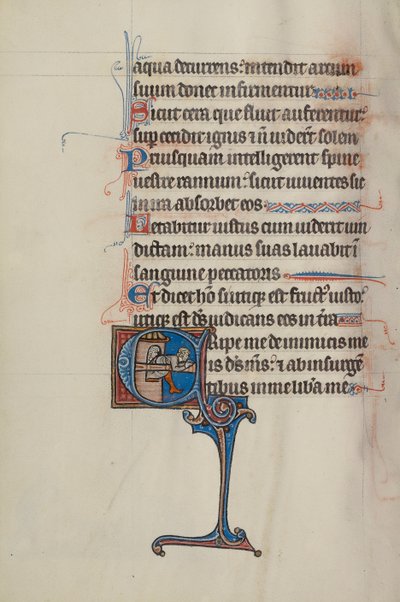 aqua decurrens: intendit arcum
suum donec infirmentur
Sicut cera que fluit auferentur:
sup cecidit ignis & n̄ viderūt solem
Priusquam intelligerent spine
vestre rannum: sicut viventes sic
in ira absorbet eos
Letabitur iustus cum viderit vin
dictam: manus suas lavabit ī
sanguine peccatoris
Et dicet hō si utiqꝫ est fruct᷒ iusto
utiqꝫ est d̄s iudicans eos in t̄ra
Eripe me de inimicis me
is d̄s m̄s: & ab insurgen̄
tibus in me lib̄a me